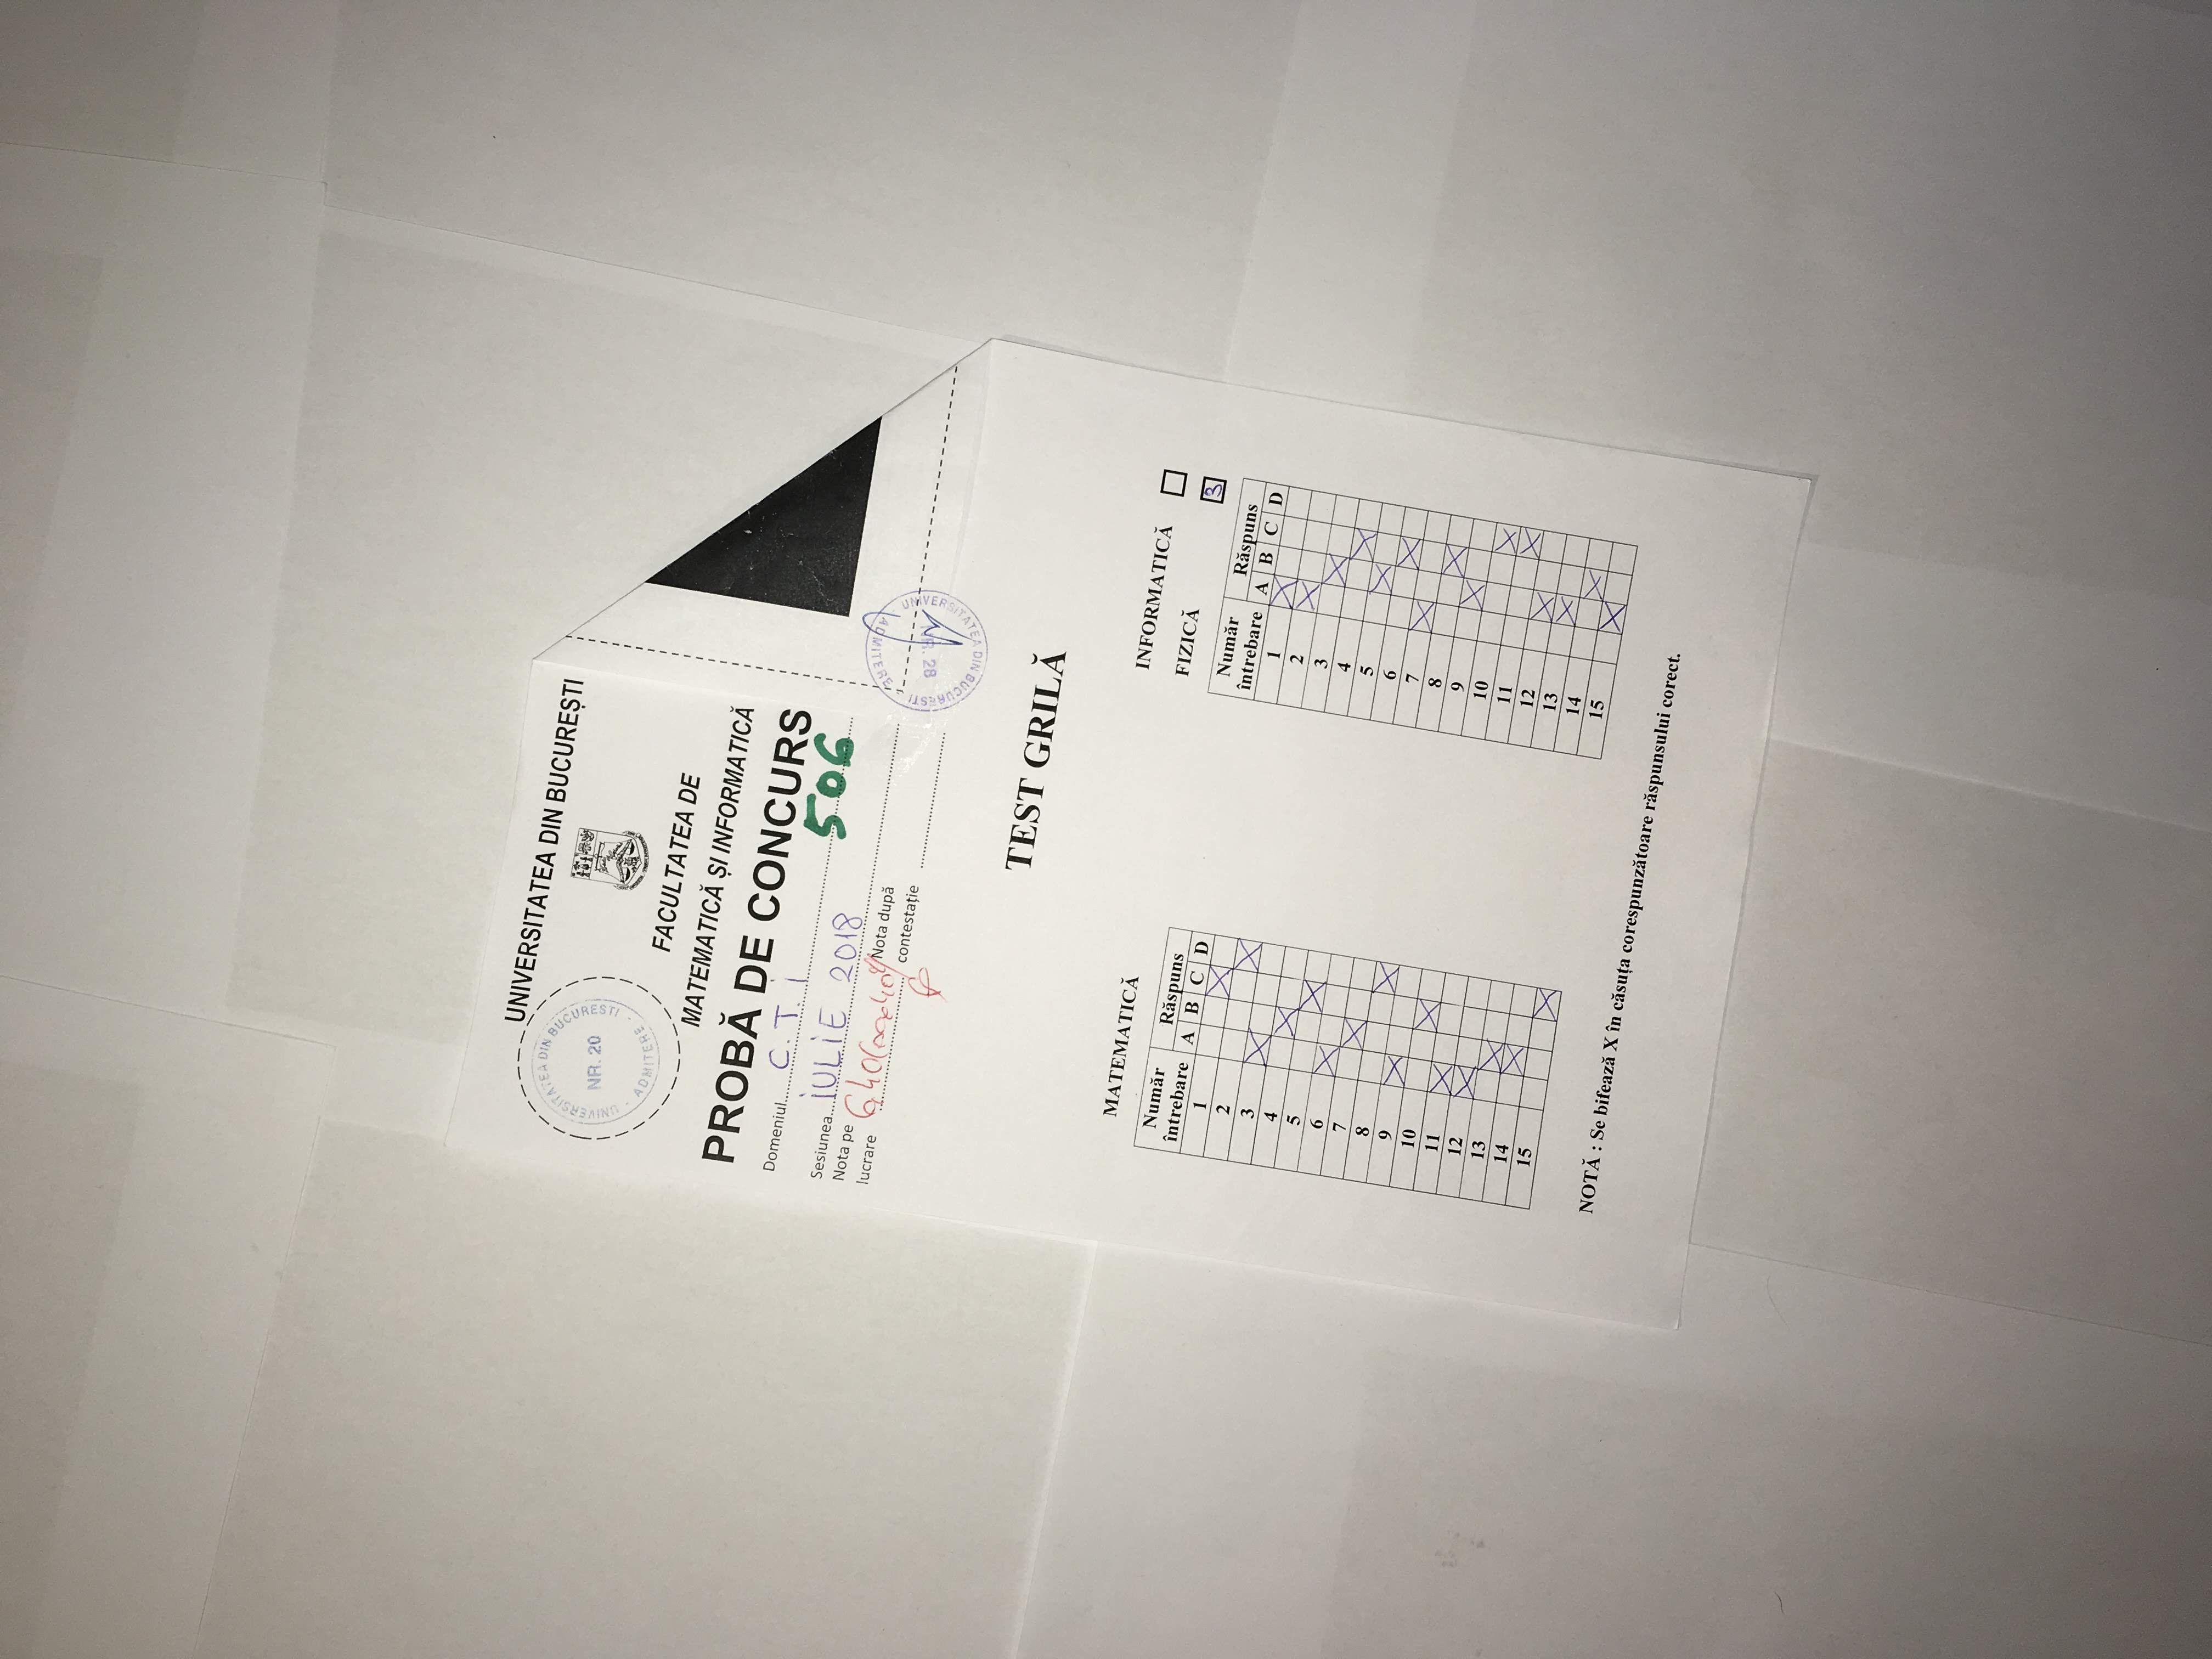 UNIVERSITATEA DIN BUCUREȘTI
UNIVERSITATEA DIN BUCURESTI
NR. 20
ADMITERE
FACULTATEA DE
MATEMATICĂ ȘI INFORMATICĂ
PROBĂ DE CONCURS
Domeniul C. T. i
506
Sesiunea iULiE 2018
Nota pe lucrare 6,40
Nota după contestație
UNIVERSITATEA DIN BUCURESTI
NR. 28
ADMITERE
TEST GRILĂ
MATEMATICĂ
Număr întrebare Răspuns
A B C D
1 X
2 X
3 X
4 X
5 X
6 X
7 X
8 X
9 X
10 X
11 X
12 X
13 X
14 X
15 X
INFORMATICĂ
FIZICĂ 3
Număr întrebare Răspuns
A B C D
1 X
2 X
3 X
4 X
5 X
6 X
7 X
8 X
9 X
10 X
11 X
12 X
13 X
14 X
15 X
NOTĂ : Se bifează X în căsuța corespunzătoare răspunsului corect.